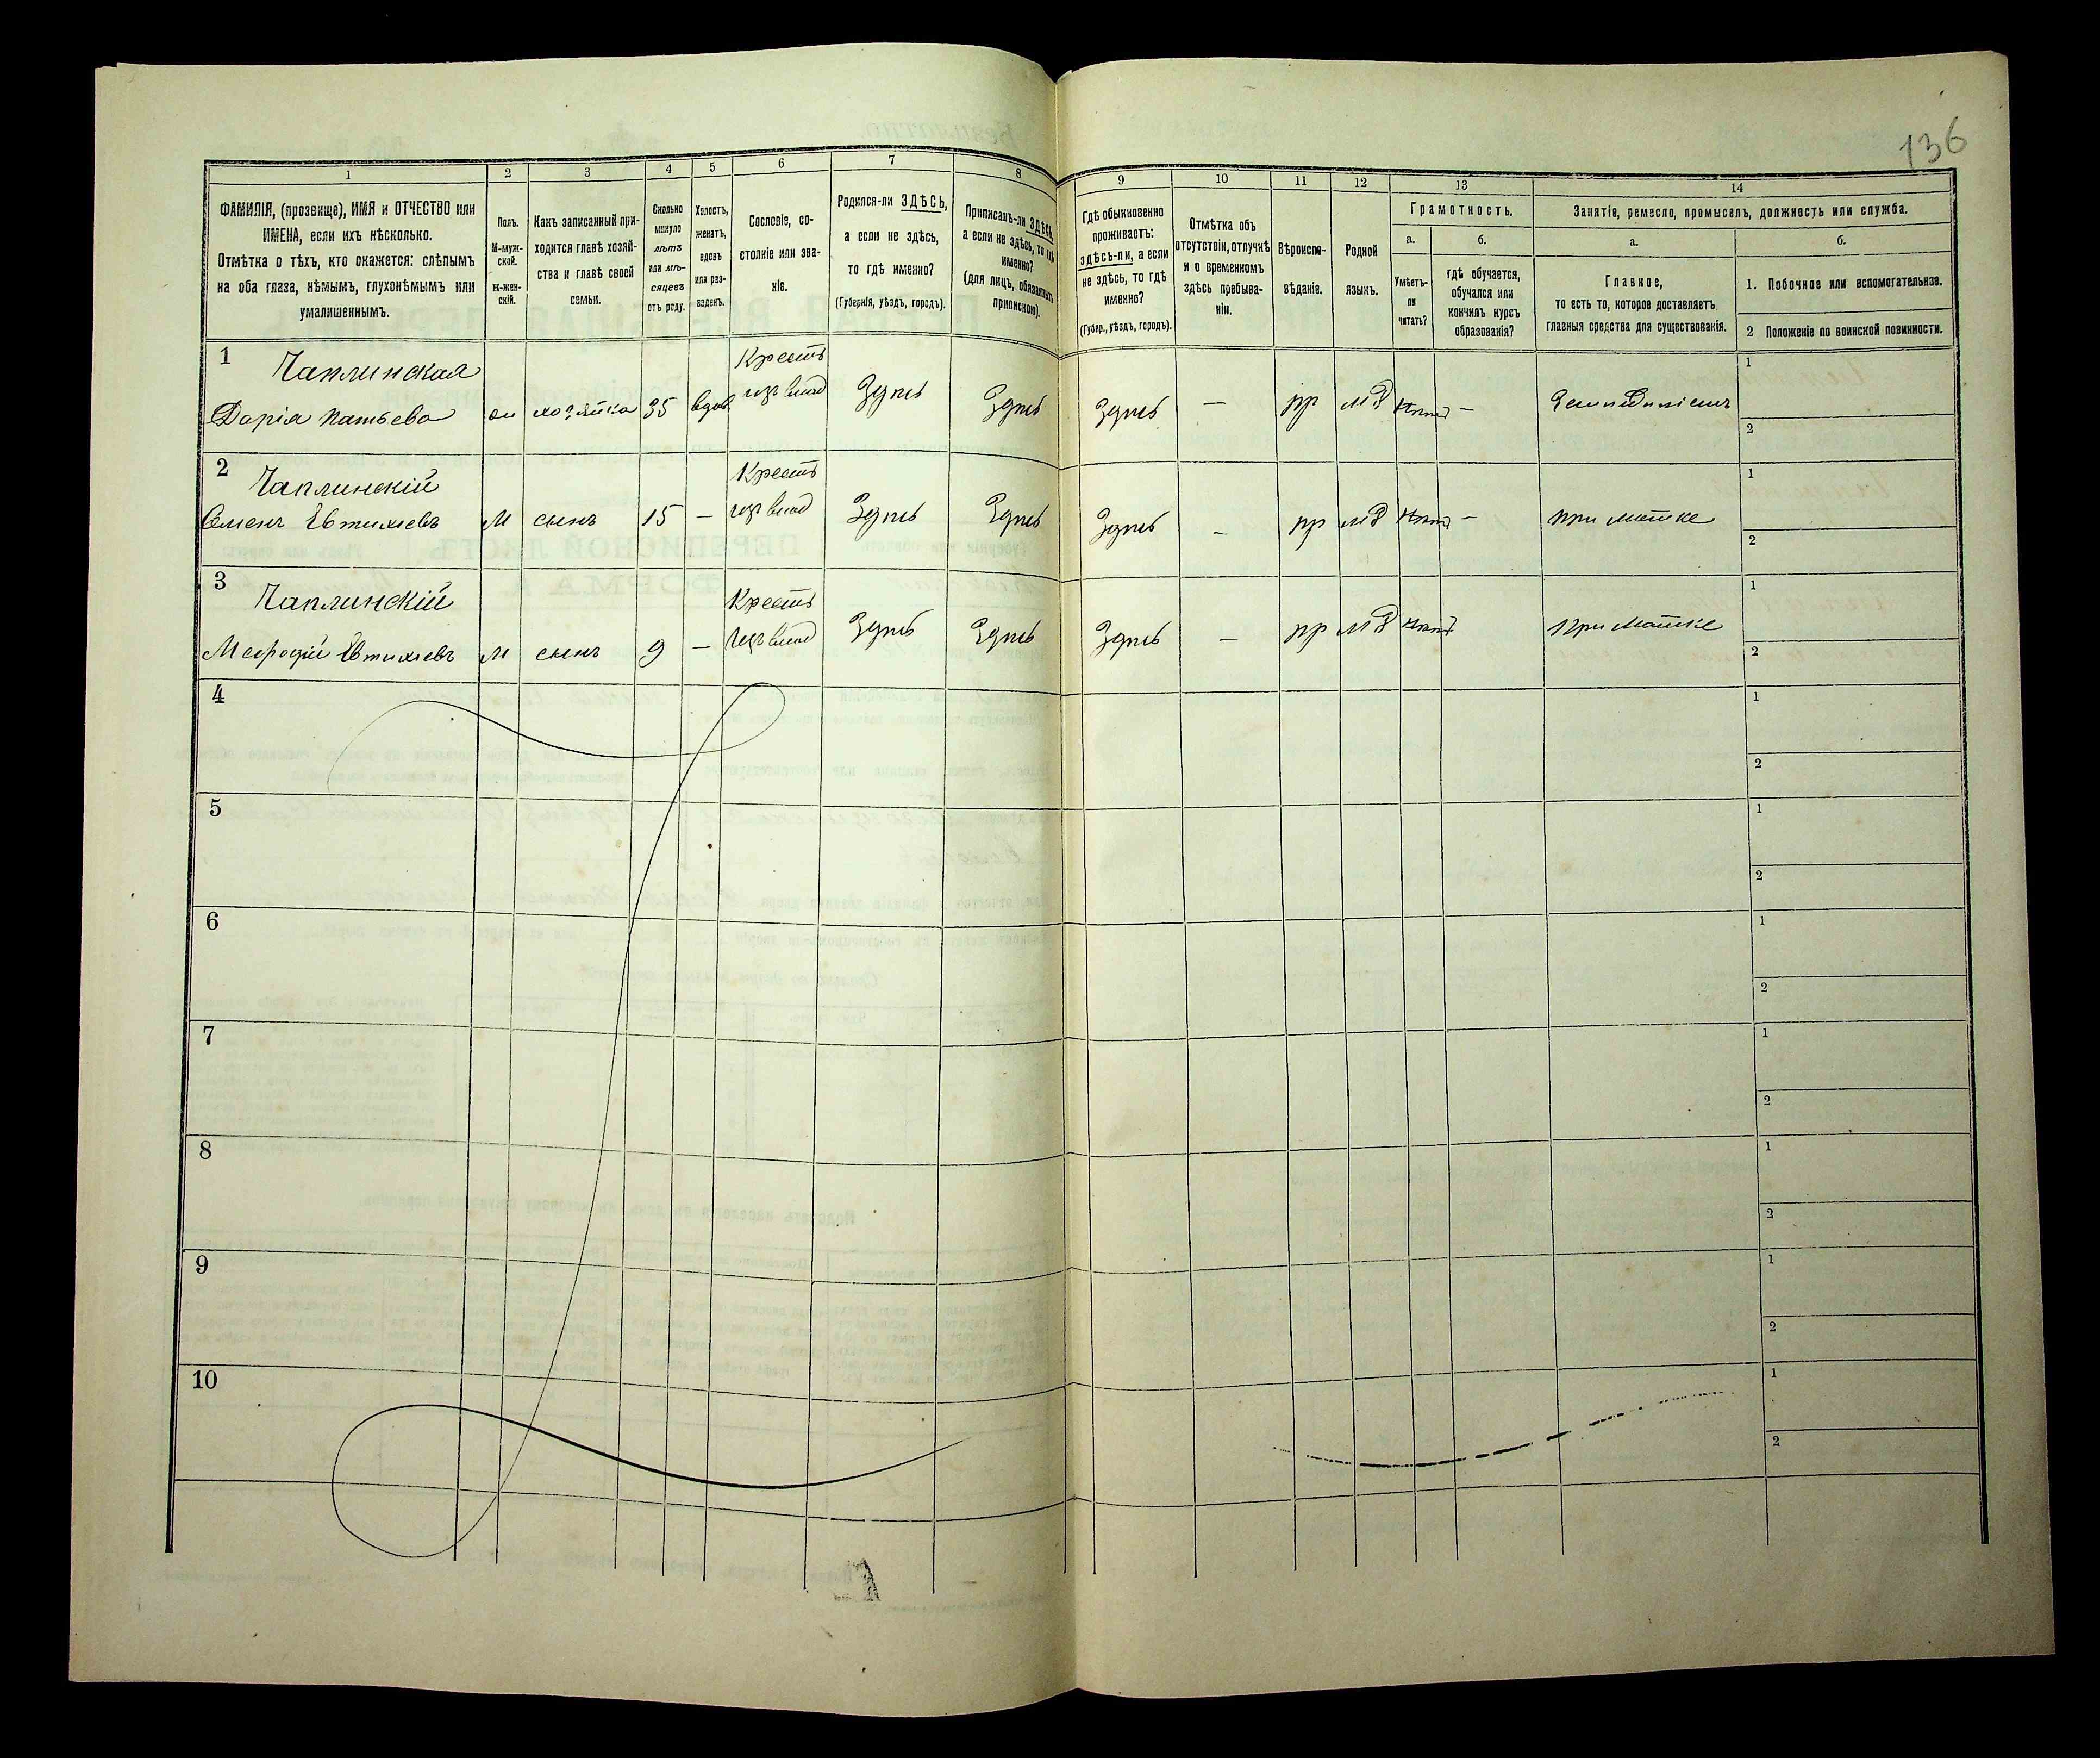 136
1 2 3 4 5 6 7 8 9 10 11 12 13 14
ФАМИЛІЯ, (прозвище), ИМЯ и ОТЧЕСТВО или
ИМЕНА, если ихъ нѣсколько.
Отмѣтка о тѣхъ, кто окажется: слѣпымъ
на оба глаза, нѣмымъ, глухонѣмымъ или
умалишеннымъ.
Полъ.
М-муж-
ской.
Ж-жен-
скій.
Какъ записанный при-
ходится главѣ хозяй-
ства и главѣ своей
семьи.
Сколько
минуло
лѣтъ
или мѣ-
сяцевъ
отъ роду.
Холостъ,
женатъ,
вдовъ
или раз-
веденъ.
Сословіе, со-
стояніе или зва-
ніе.
Родился-ли ЗДѢСЬ,
а если не здѣсь,
то гдѣ именно?
(Губернія, уѣздъ, городъ).
Приписанъ-ли ЗДѢСЬ,
а если не здѣсь, то гдѣ
именно?
(для лицъ, обязанныхъ
припискою).
Гдѣ обыкновенно
проживаетъ:
здѣсь-ли, а если
не здѣсь, то гдѣ
именно?
(Губер., уѣздъ, городъ).
Отмѣтка объ
отсутствіи, отлучкѣ
и о временномъ
здѣсь пребыва-
ніи.
Вѣроиспо-
вѣданіе.
Родной
языкъ.
Грамотность.
а.
Умѣетъ-
ли
читать?
б.
гдѣ обучается,
обучался или
кончилъ курсъ
образованія?
Занятіе, ремесло, промыселъ, должность или служба.
а.
Главное,
то есть то, которое доставляетъ
главныя средства для существованія.
б.
1. Побочное или вспомогательное.
2 Положеніе по воинской повинности.
1 Чаплинская Крест 1
Дарія хозяйка 35 вдов. Здѣсь Здѣсь Здѣсь — пр мР нѣтъ — 2
2 Чаплинскій Крест 1
Семенъ Евтихіевъ М сынъ 15 — Здѣсь Здѣсь Здѣсь — пр мР нѣтъ — при матке 2
3 Чаплинскій Крест 1
Мефодій Евтихіевъ М сынъ 9 — Здѣсь Здѣсь Здѣсь — пр мР нѣтъ при матке 2
4 1
2
5 1
2
6 1
2
7 1
2
8 1
2
9 1
2
10 1
2